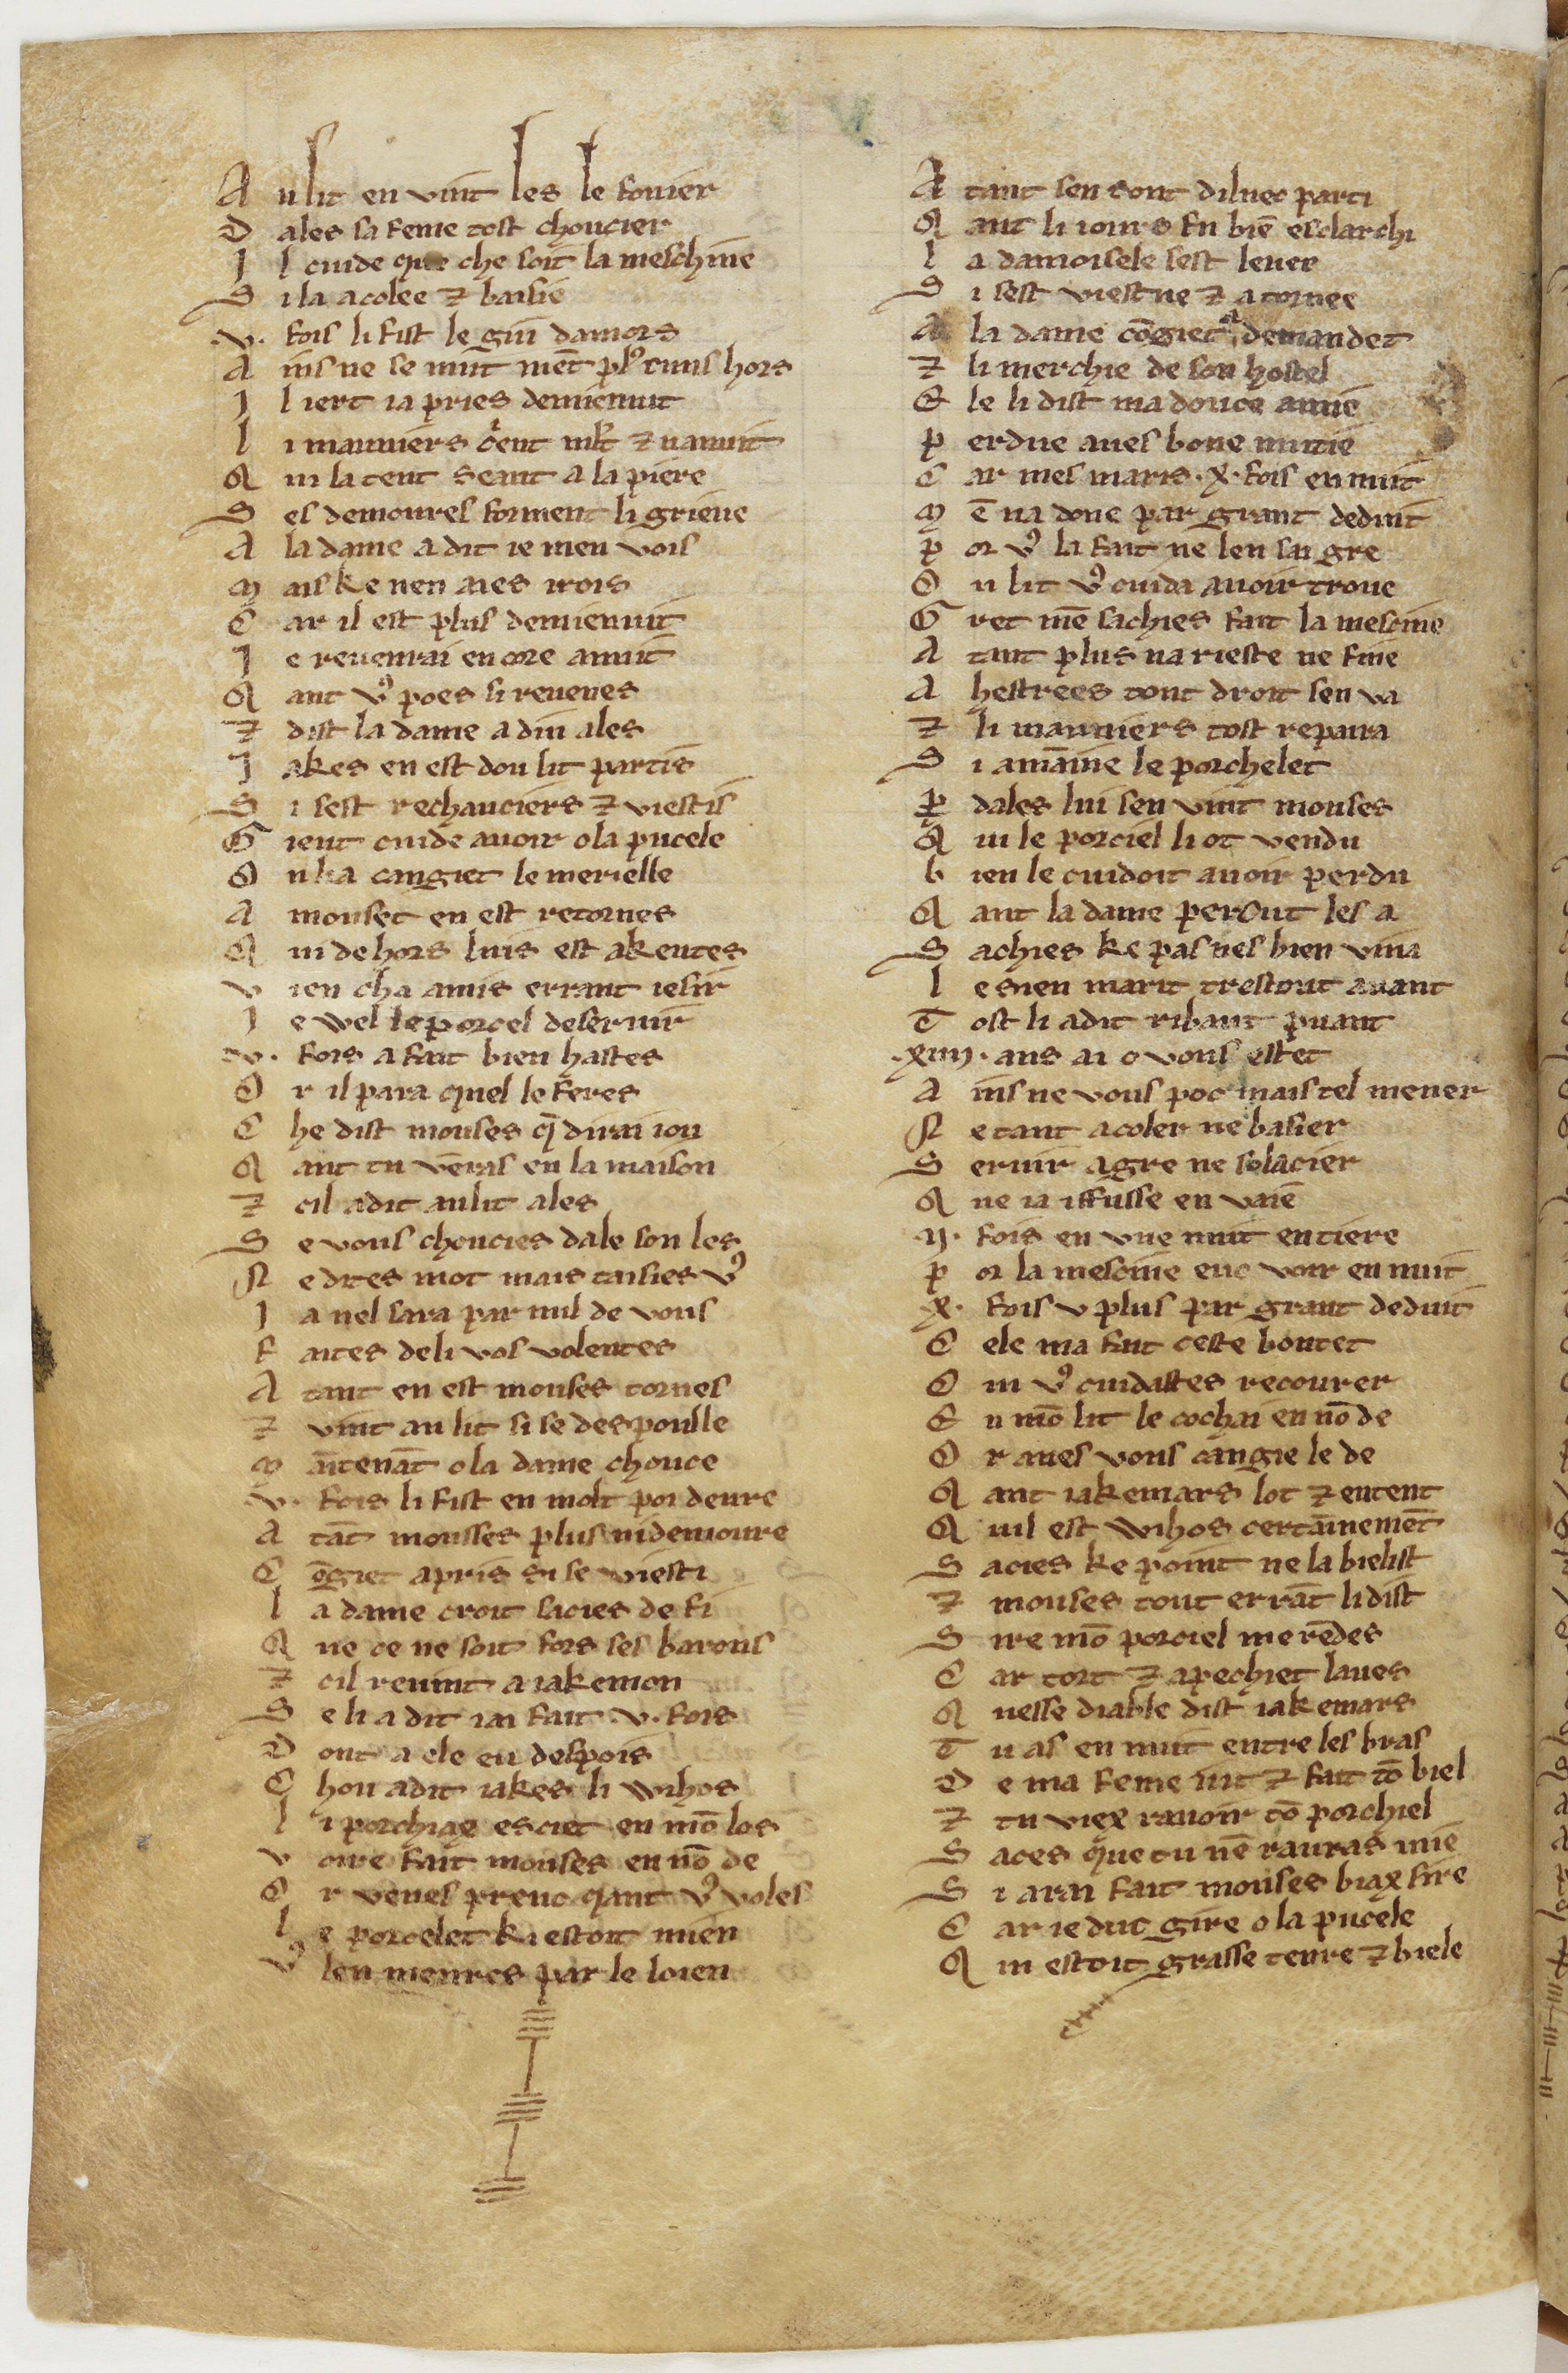 A u lit en vint les le fouier
D ales sa feme tost choucier
J l cuide que che soit la meschine
S i la acolee ⁊ baisie
.v. fois li fist le giu damors
A ins ne se mut hors
J l iert ia pries demienuit
l i mauniers ⁊ uanuit
Q ui latent seant a la piere
S es demoures forment li grieue
A la dame a dit ie men vois
M ais ke nen aies irois
C ar il est plus demienuit
J e reuenrai encore anuit
Q ant vꝰ poes si reuenes
⁊ dist la dame a diu ales
J akes en est dou lit partis
S i sest rechauciers ⁊ viestis
G ient cuide auoir o la pucele
O n li a cangiet le merielle
A mouset en est retornes
Q ui de hors luis est akeutes
V ien cha amis errant iesir
J e wel le porcel deseruir
.v. fois a fait bien hastes
O r il para quel le feres
C he dist mouses q̄ dirai iou
Q ant tu vēras en la maison
⁊ cil a dit au lit ales
S e vous choucies dale son les
N e dites mot mais taisies vꝰ
J a nel sara par nul de vous
F aites de li vos volentes
A tant en est mouses tornes
⁊ vint au lit si se despoulle
M āitenāt o la dame chouce
.v. fois li fist en molt poi deure
A tāt mousses plus ni demoure
C ōgiet a pris si se viesti
l a dame croit sacies de fi
Q ue ce ne soit fors ses barons
⁊ cil reuint a iakemon
S e li a dit iai fait .v. fois
D ont a ele eu despois
C hou a dit iakes li wihos
l i porchiax esciet en mō los
V oire fait mouses en nō de
O r venes preuc qant vꝰ voles
l e porcelet ki estoit mien
Vꝰ len menres par le loien
A tant sen sont diluec parti
Q ant li iours fu biē esclarchi
l a damoisele sest leuee
S i sest viestue ⁊ atornee
A la dame cōgiet a demandet
⁊ li merchie de son hostel
E le li dist ma douce amie
P erdue aues bone nuitie
C ar mes maris .x. fois en nuit
M ē ua done par grant deduit
P or vꝰ la fait ne len sai gre
O u lit vꝰ cuida auoir troue
G ret mē sachies fait la mescine
A tant plus na rieste ne fine
A hestrees tout droit sen va
⁊ li mauniers tost repaira
S i amāine le porchelet
P dales lui sen vint mouses
Q ui le porciel li ot vendu
b ien le cuidoit auoir perdu
Q ant la dame percout les a
S achies ke pas nes bien vina
l e sien marit trestout auant
T ost li a dit ribaut puant
.xiiij. ans ai o vous estet
A ins ne vous poc mais tel mener
N e tant acoler ne baisier
S eruir a gre ne solacier
Q ue ia iffusse en vaie
.ij. fois en vne nuit entiere
P or la mescine euc voir en nuit
.x. fois v plus par grant deduit
C ele ma fait ceste bontet
C ui vꝰ cuidastes recourer
E n mō lit le cochai en nō de
O r aues vous cangie le de
Q ant iakemars lot ⁊ entent
Q uil est wihos certāinemēt
S acies ke point ne la bielist
⁊ mouses tout errāt li dist
S ire mō porciel me rēdes
C ar tort ⁊ a pechiet laues
Q uesse diable dist iakemars
T u as en nuit entre les bras
D e ma feme iut ⁊ fait tō biel
⁊ tu viex rauoir tō porchiel
S aces que tu nē rauras mie
S i arai fait mouses biax sire
C ar ie duc gire o la pucele
Q ui estoit grasse tenre ⁊ biele